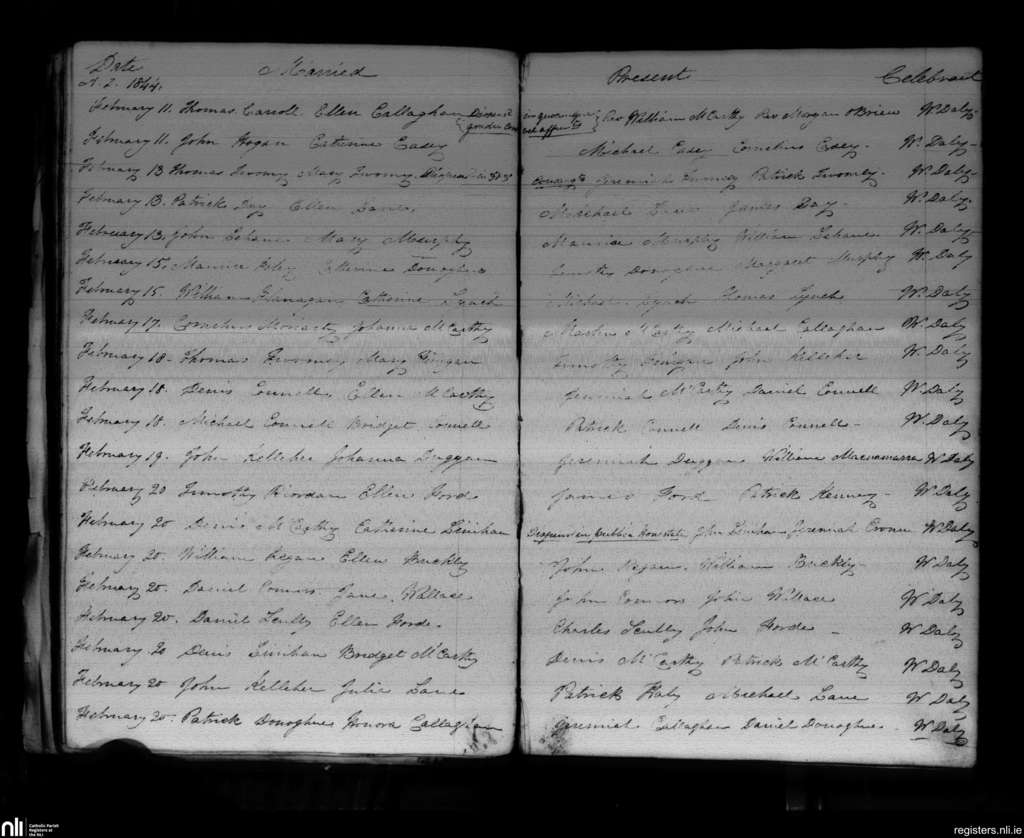 Date Married Present Celebrant
A.D. 1844.
February 11. Thomas Carroll Ellen Callaghan Rev William McCarthy Rev Morgan O'Brien W. Daly
February 11. John Hogan Catherine Casey Michael Casey Cornelius Casey - W. Daly -
February 13 Thomas Twomey Mary Twomey. Patrick Twomey - W. Daly -
February 13. Patrick Day Ellen Lane. Michael Lane James Day - W. Daly -
February 13. John Mary Murphy Maurice Murphy William W. Daly -
February 15. Maurice Catherine Donoghue Timothy Donoghue Margaret Murphy W. Daly
February 15. William Flanagan Catherine Lynch Michael Lynch Thomas Lynch W. Daly
February 17. Cornelius Moriarty Johanna McCarthy McCarthy Michael Callaghan W. Daly
February 18 - Thomas Twomey Mary Timothy John Kelleher W. Daly
February 18. Denis Connell Ellen McCarthy Jeremiah McCarthy Daniel Connell W Daly
February 18. Michael Connell Bridget Connell Patrick Connell Denis Connell - W. Daly
February 19. John Kelleher Johanna Duggan Jeremiah Duggan William Macnamarra W Daly
February 20 Timothy Riordan Ellen Forde James Ford Patrick Kenney - W. Daly
February 20 Denis McCarthy Catherine Linihan John Linihan Jeremiah Cronin W Daly
February 20. William Regan Ellen Buckley John Regan William Buckley - W Daly
February 20. Daniel Connors Jane Wallace John Connors John Wallace W Daly
February 20. Daniel Scully Ellen Forde - Charles Scully John Forde - W Daly
February 20 Denis Linihan Bridget McCarthy Denis McCarthy Patrick McCarthy W Daly
February 20 John Kelleher Julia Lane Patrick Michael Lane W Daly
February 20. Patrick Donoghue Honora Callaghan Jeremiah Callaghan Daniel Donoghue - W Daly
nli Catholic Parish Registers at the NLI
registers.nli.ie